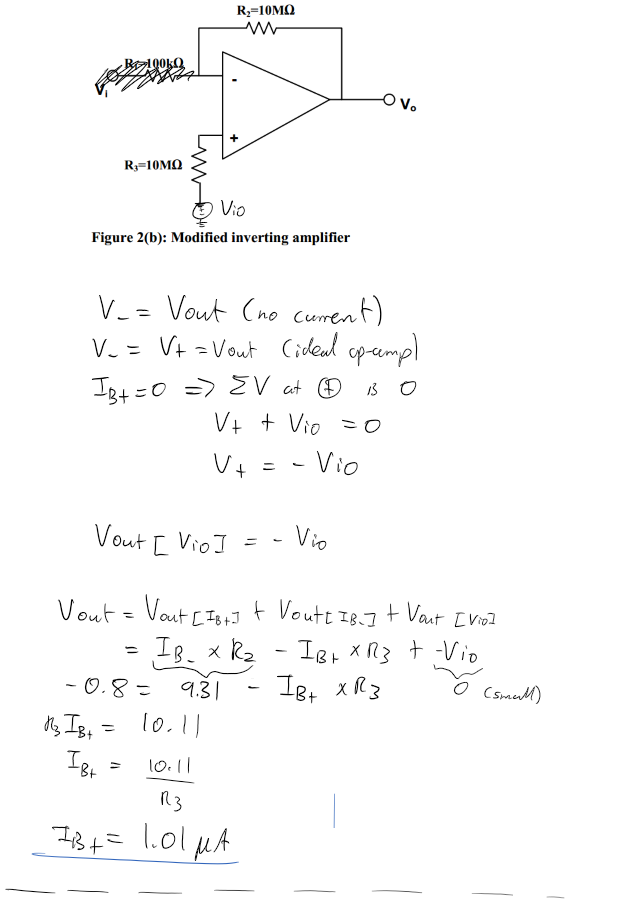 R₂=10MΩ
R₁=100kΩ
Vᵢ
-
+
Vₒ
R₃=10MΩ
Vio
Figure 2(b): Modified inverting amplifier
V- = Vout (no current)
V- = V+ = Vout (ideal op-amp)
I_B+ = 0 => ΣV at ⊕ is 0
V+ + Vio = 0
V+ = - Vio
Vout [Vio] = - Vio
Vout = Vout [I_B+] + Vout [I_B-] + Vout [Vio]
= I_B- × R₂ - I_B+ × R3 + -Vio
-0.8 = 9.31 - I_B+ × R3 0 (small)
R3 I_B+ = 10.11
I_B+ = 10.11
R3
I_B+ = 1.01 μA